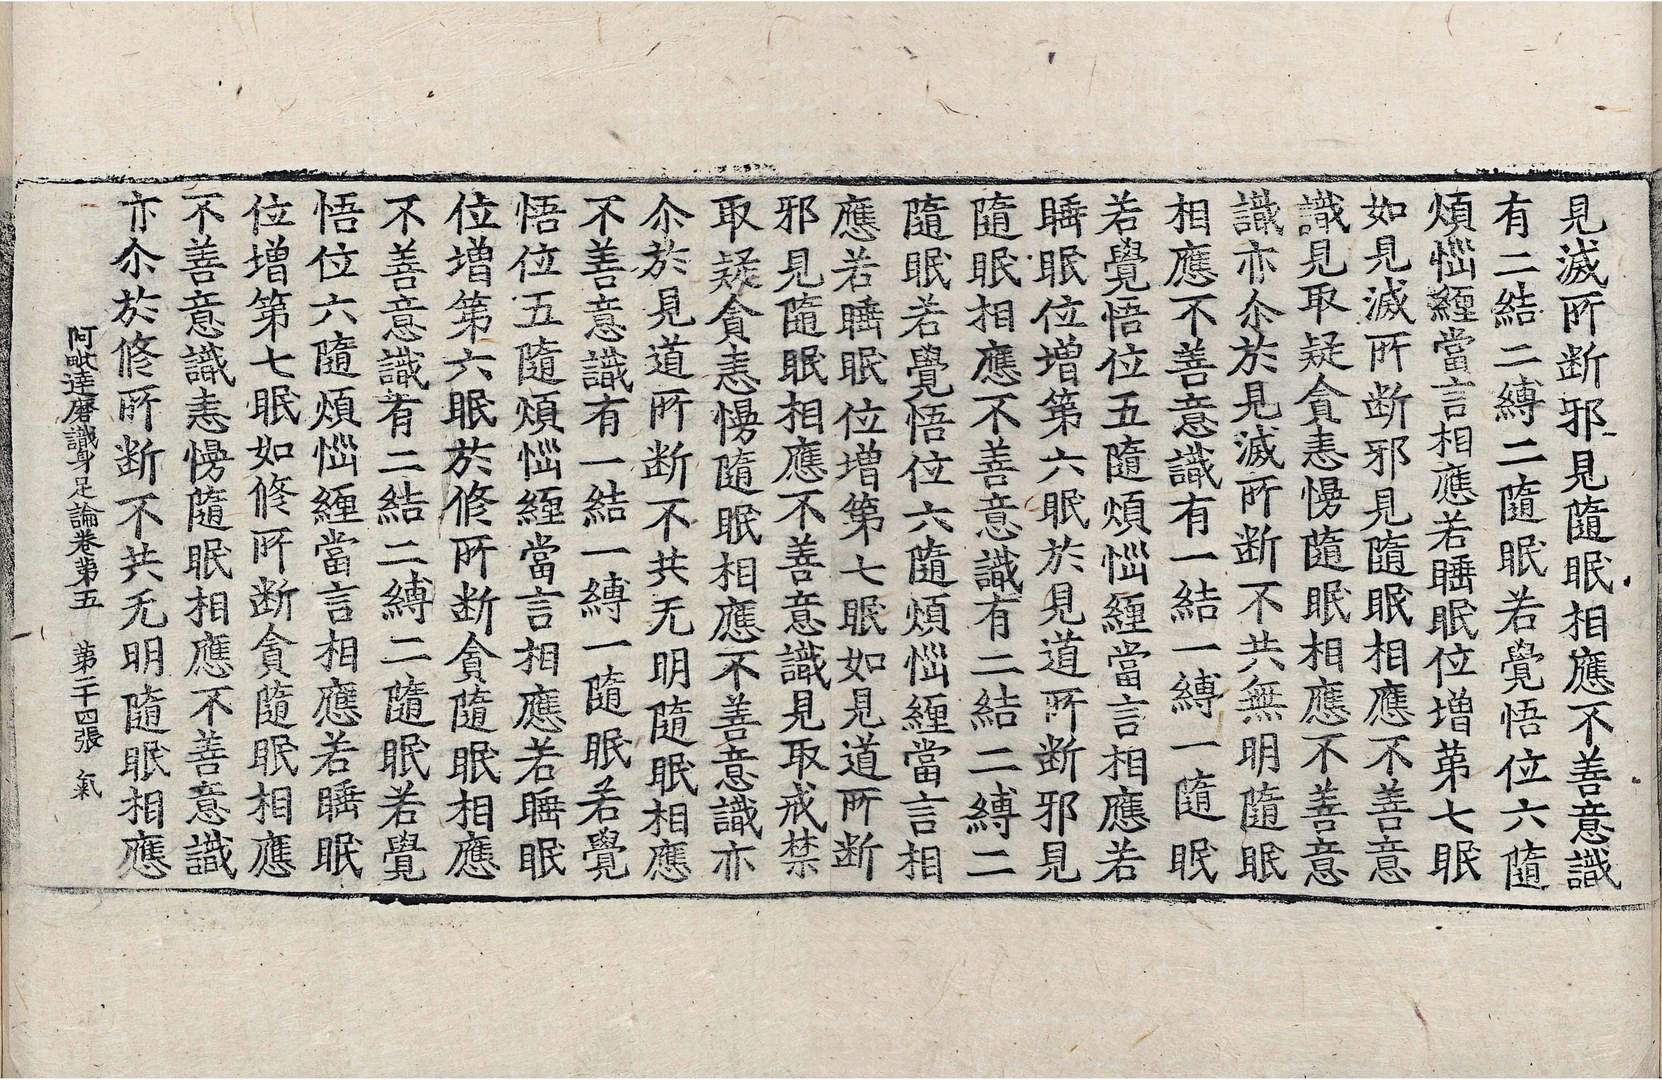 見滅所断邪見隨眠相應不善意識
有二結二縛二隨眠若覺悟位六隨
煩惱纏當言相應若睡眠位增第七眠
如見滅所断邪見隨眠相應不善意
識見取疑貪恚慢隨眠相應不善意
識亦尒於見滅所断不共無明隨眠
相應不善意識有一結一縛一隨眠
若覺悟位五隨煩惱纏當言相應若
睡眠位增第六眠於見道所断邪見
隨眠相應不善意識有二結二縛二
隨眠若覺悟位六隨煩惱纏當言相
應若睡眠位增第七眠如見道所断
邪見隨眠相應不善意識見取戒禁
取疑貪恚慢隨眠相應不善意識亦
尒於見道所断不共无明隨眠相應
不善意識有一結一縛一隨眠若覺
悟位五隨煩惱纏當言相應若睡眠
位增第六眠於修所断貪隨眠相應
不善意識有二結二縛二隨眠若覺
悟位六隨煩惱纏當言相應若睡眠
位增第七眠如修所断貪隨眠相應
不善意識恚慢隨眠相應不善意識
亦尒於修所断不共无明隨眠相應
阿毗達磨識身足論卷第五 第二十四張 氣